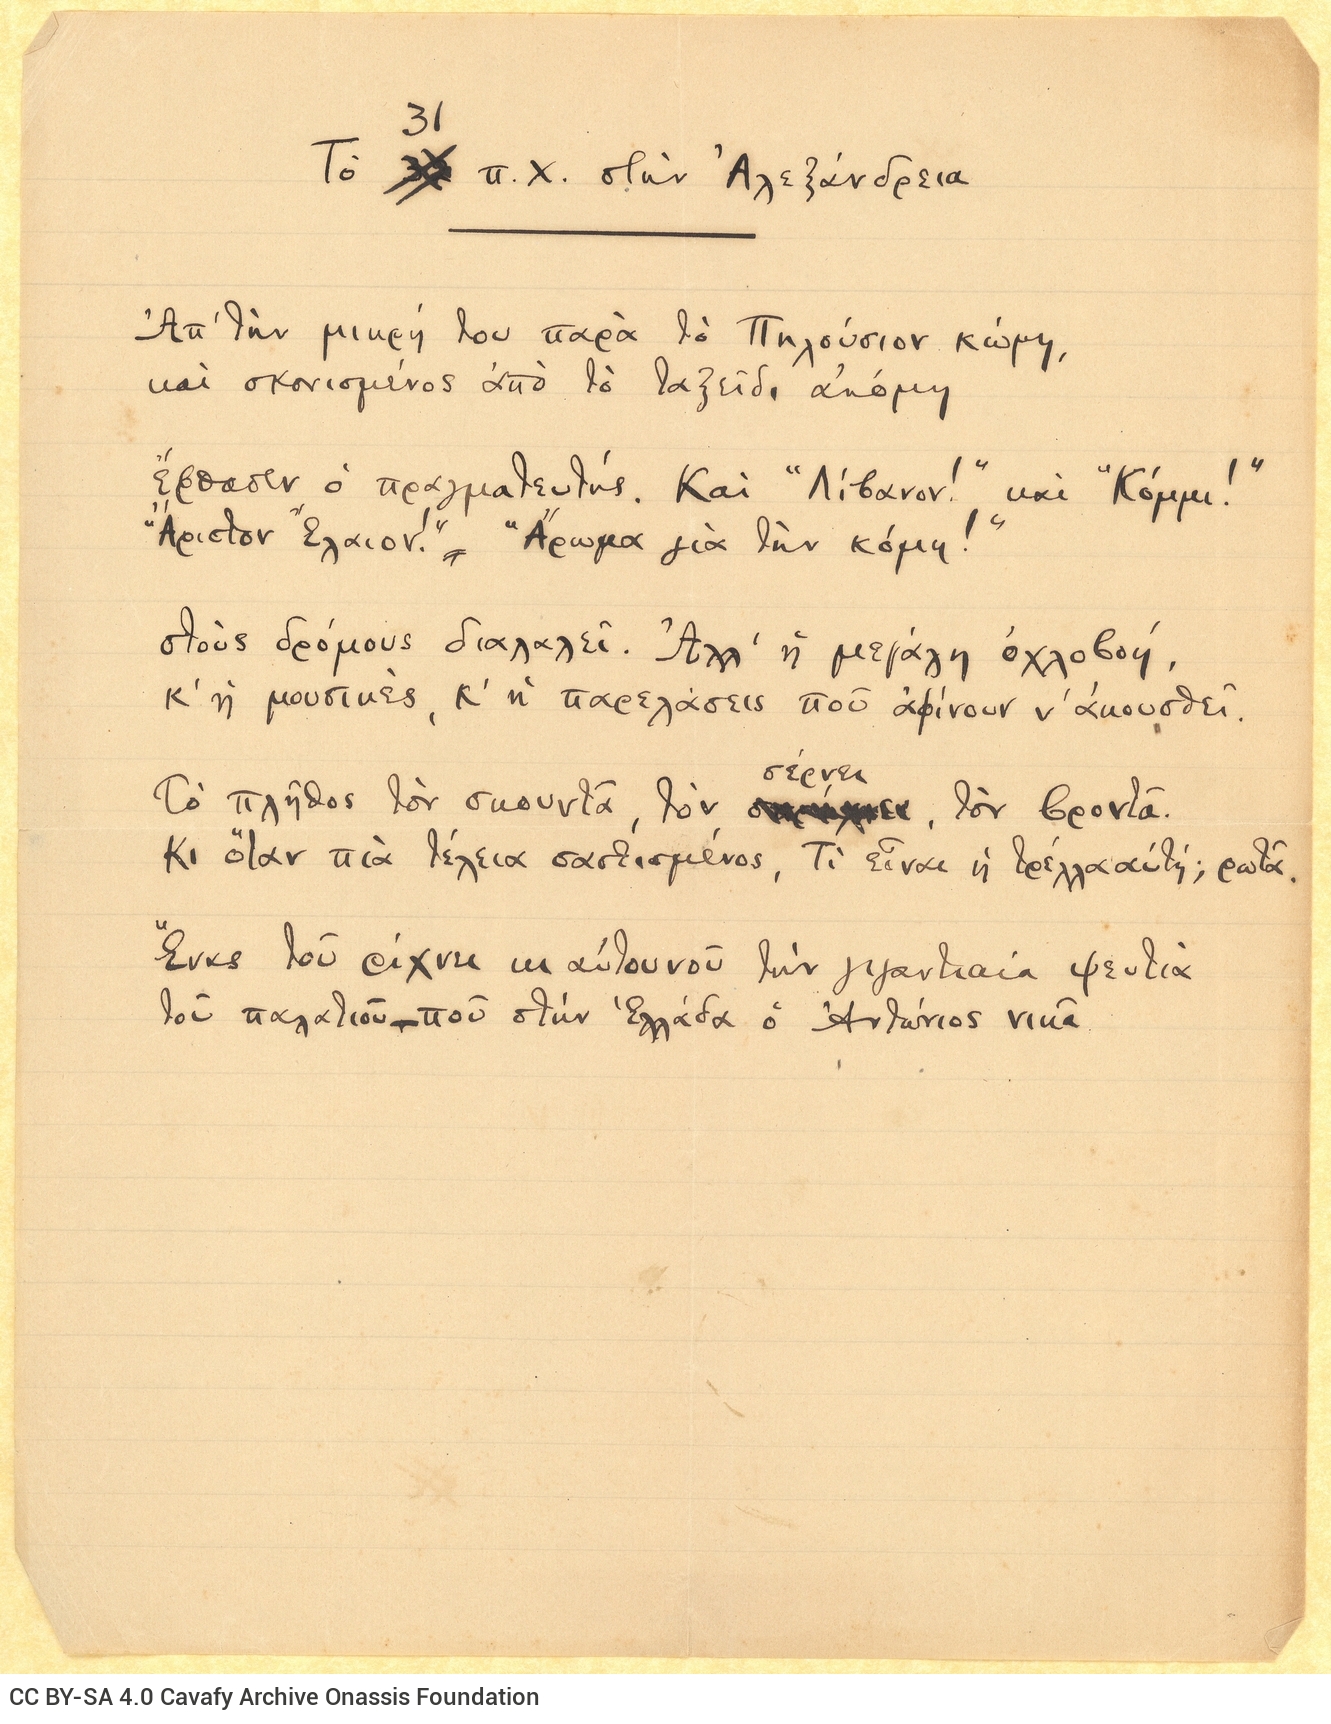 31
Τὸ π.Χ. στὴν Ἀλεξάνδρεια
Ἀπ' τὴν μικρή του παρὰ τὸ Πηλούσιον κώμη,
καὶ σκονισμένος ἀπὸ τὸ ταξεῖδι ἀκόμη
ἔφθασεν ὁ πραγματευτής. Καὶ “Λίβανον!” καὶ “Κόμμι!”
“Ἄριστον Ἔλαιον!”, “Ἄρωμα γιὰ τὴν κόμη!”
στοὺς δρόμους διαλαλεῖ. Ἀλλ' ἡ μεγάλη ὀχλοβοή,
κ' ἡ μουσικὲς, κ' ἡ παρελάσεις ποῦ ἀφίνουν ν' ἀκουσθεῖ.
σέρνει
Τὸ πλῆθος τὸν σκουντᾶ, τὸν , τὸν βροντᾶ.
Κι ὅταν πιὰ τέλεια σαστισμένος, Τὶ εἶναι ἡ τρέλλα αὐτή; ρωτᾶ.
Ἕνας τοῦ ρίχνει κι αὐτουνοῦ τὴν γιγαντιαία ψευτιὰ
τοῦ παλατιοῦ – ποῦ στὴν Ἑλλάδα ὁ Ἀντώνιος νικᾶ
CC BY-SA 4.0 Cavafy Archive Onassis Foundation